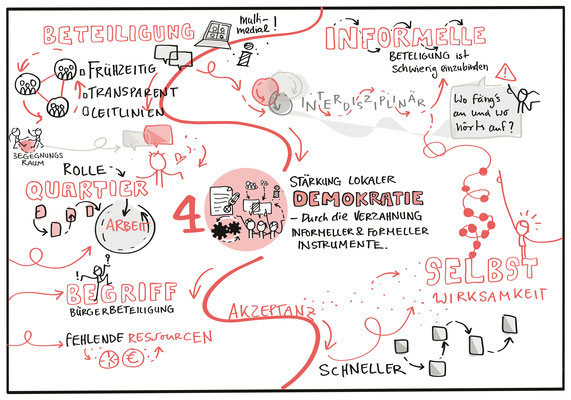 BETEILIGUNG
multi-
medial!
FRÜHZEITIG
TRANSPARENT
LEITLINIEN
BEGEGNUNGS
RAUM
ROLLE
QUARTIER
ARBEIT
BEGRIFF
BÜRGERBETEILIGUNG
FEHLENDE RESSOURCEN
€
INFORMELLE
BETEILIGUNG IST
Schwierig einzubinden
!
INTERDISZIPLINÄR
Wo fäng's
an und wo
hört's auf?
4
STÄRKUNG LOKALER
DEMOKRATIE
- Durch die VERZAHNUNG
INFORMELLER & FORMELLER
INSTRUMENTE.
SELBST
WIRKSAMKEIT
AKZEPTANZ
SCHNELLER